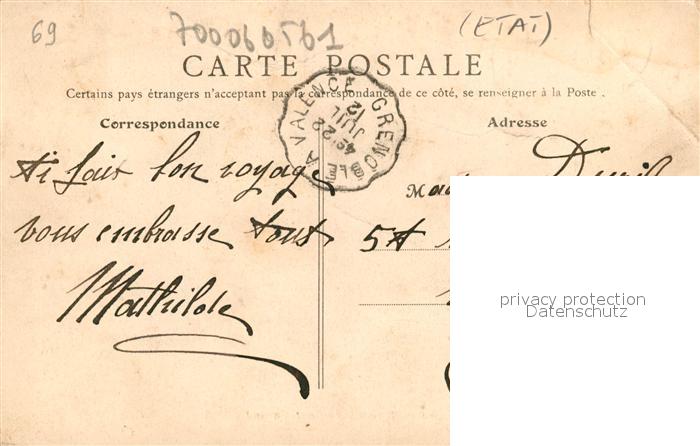 69
700060561
(ETAT)
CARTE POSTALE
Certains pays étrangers n'acceptant pas la correspondance de ce côté, se renseigner à la Poste.
GRENOBLE A VALENCE
22
JUIL
12
Correspondance
Adresse
Ai fait bon voyage
vous embrasse tous
Mathilde
Mad
5t
privacy protection
Datenschutz